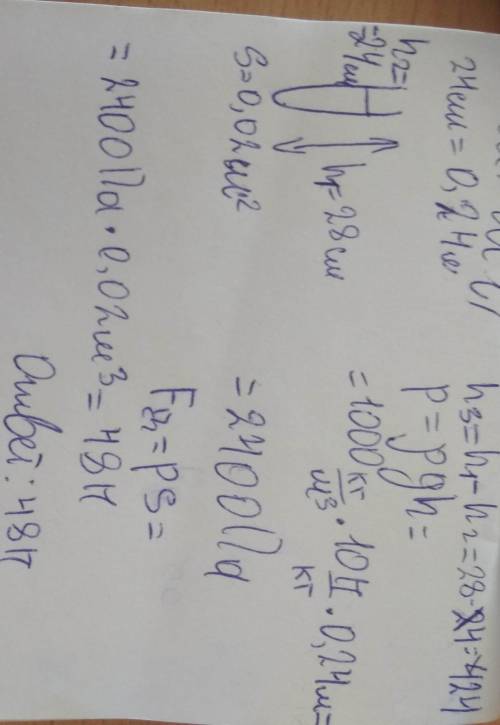 24см = 0,24м
h2=
=24см
h1=28см
S=0,02м²
h3=h1-h2=28-24=424
p=ρgh=
=1000 кг/м3 · 10 Н/кг · 0,24м=
=2400Па
Fдн=pS=
=2400Па·0,02м3=48Н
Ответ: 48Н